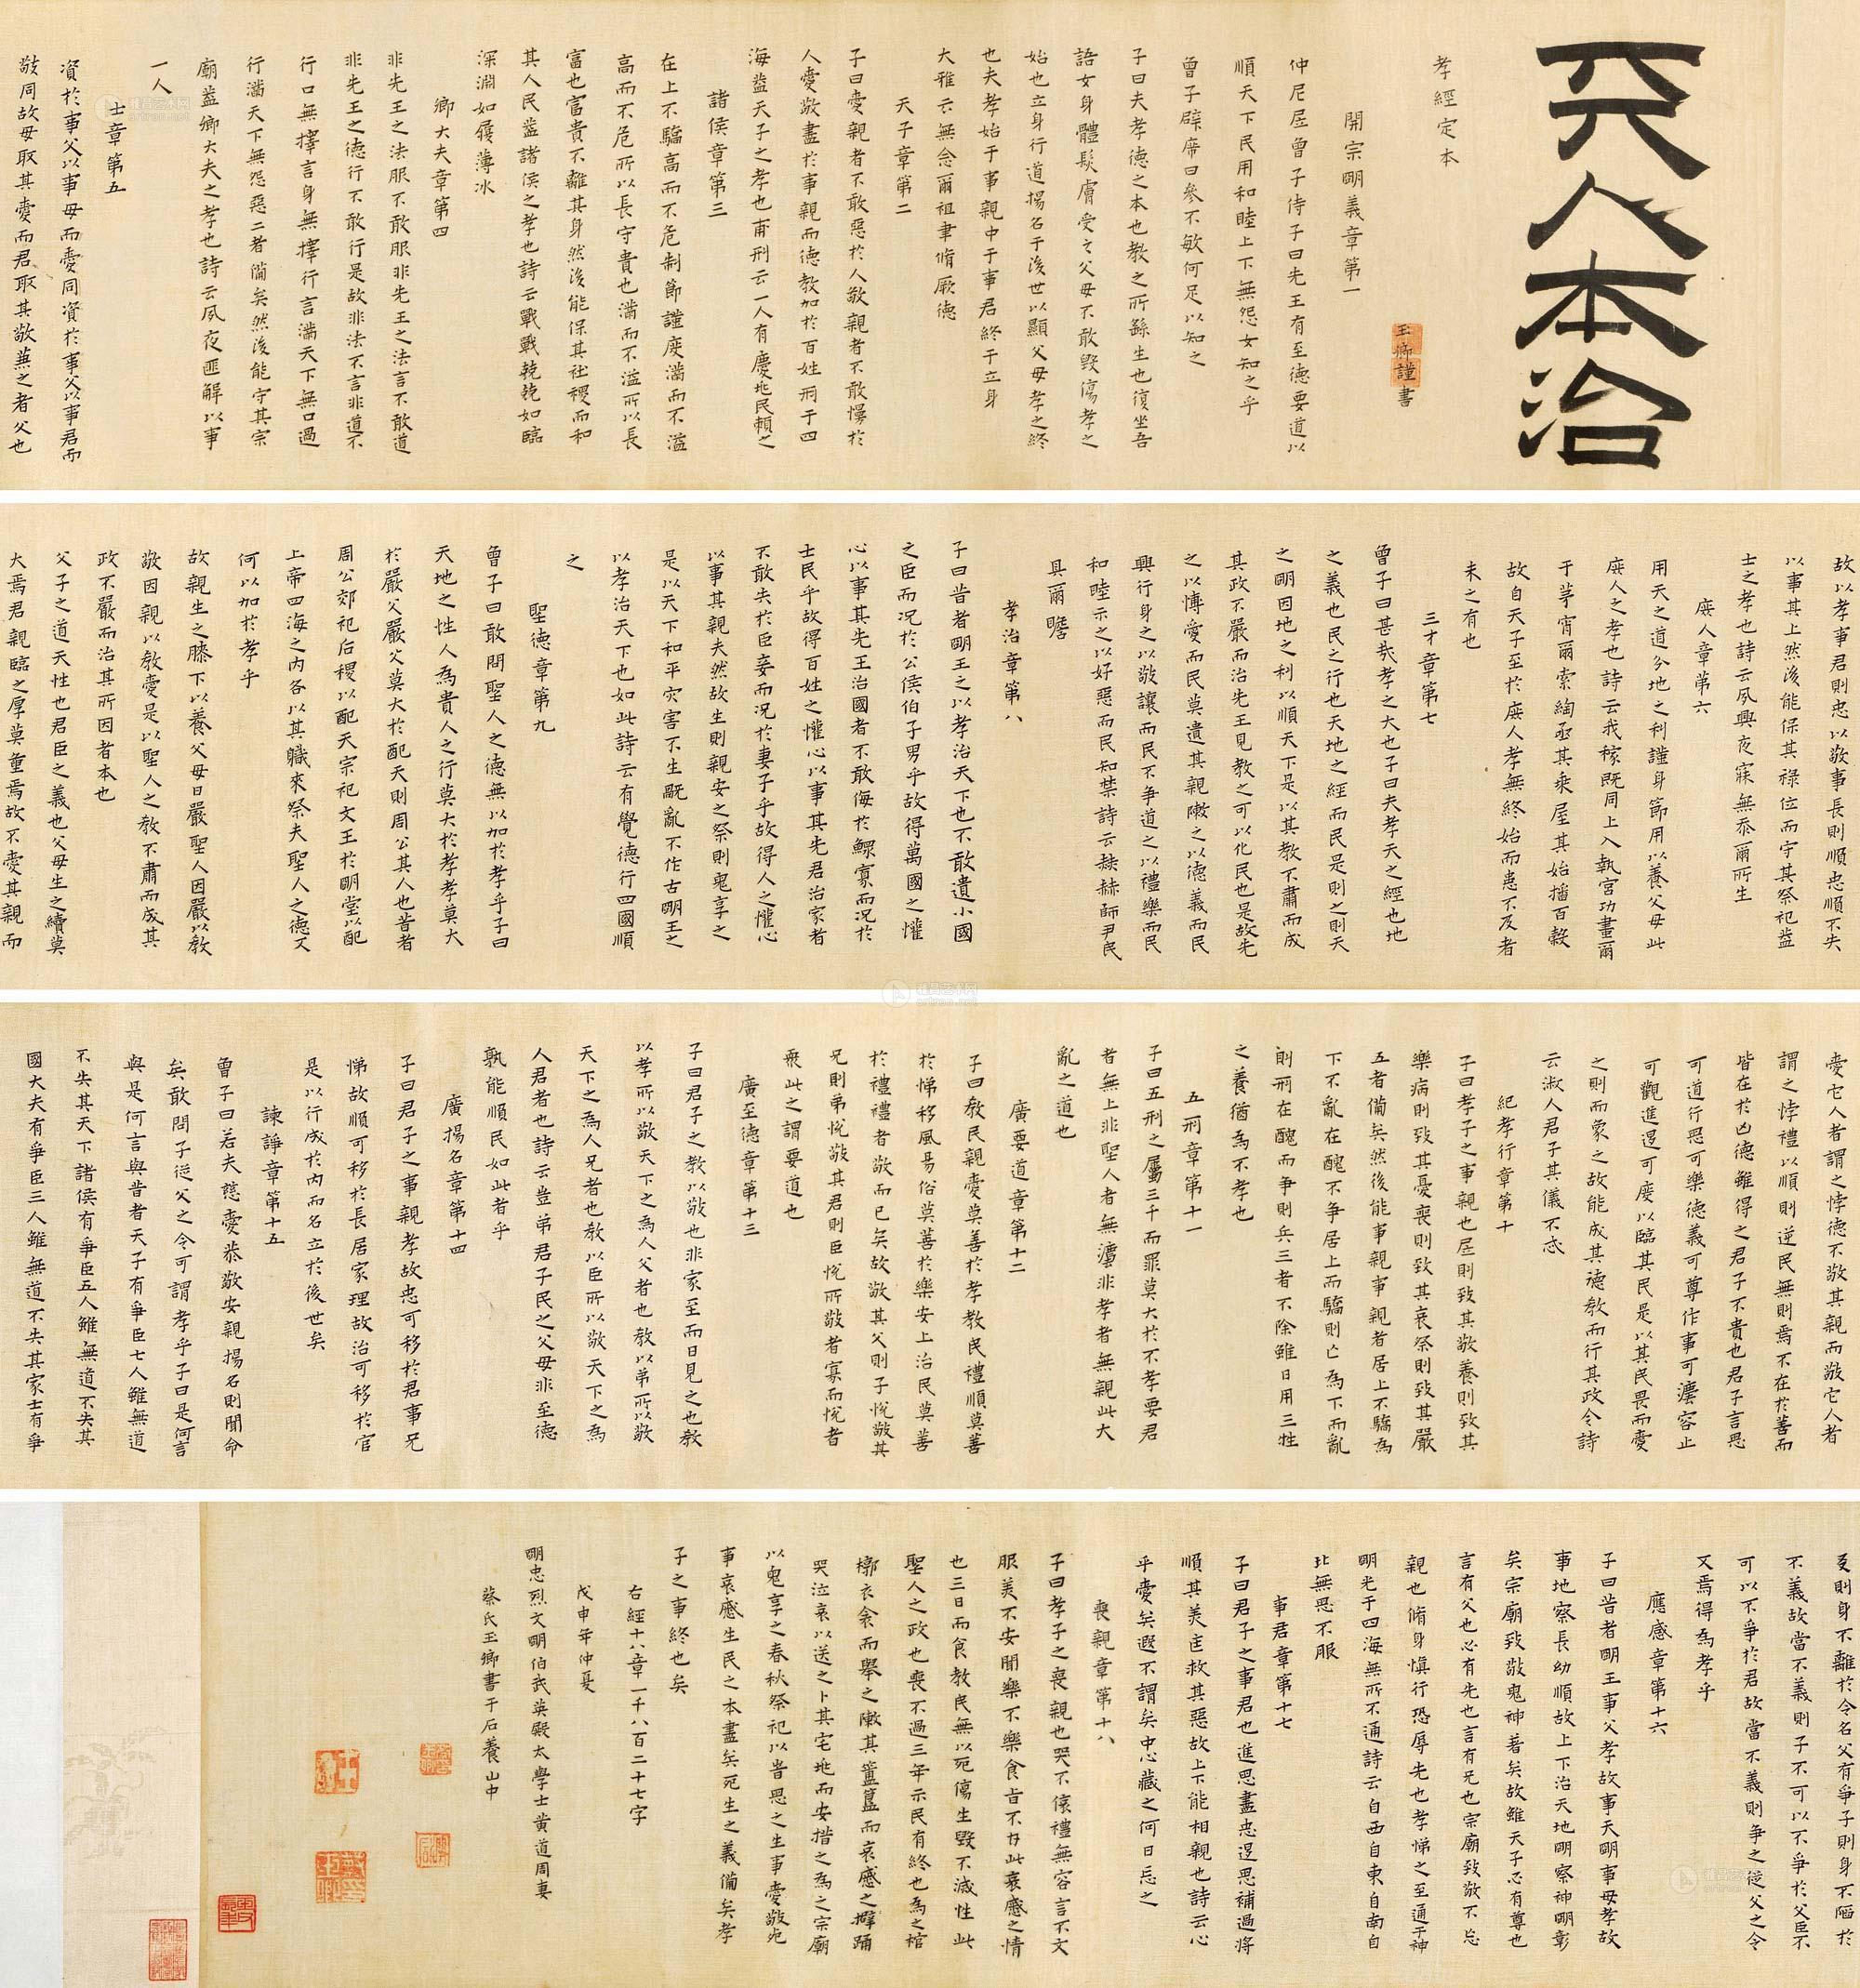 天人本治
孝經定本
玉卿謹書
開宗明義章第一
仲尼凥曾子侍子曰先王有至德要道以
順天下民用和睦上下無怨女知之乎
曾子辟席曰參不敏何足以知之
子曰夫孝德之本也教之所繇生也復坐吾
語女身體髮膚受之父母不敢毀傷孝之
始也立身行道揚名于後世以顯父母孝之終
也夫孝始于事親中于事君終于立身
大雅云無念爾祖聿脩厥德
天子章第二
子曰愛親者不敢惡於人敬親者不敢慢於
人愛敬盡於事親而德教加於百姓刑于四
海蓋天子之孝也甫刑云一人有慶兆民賴之
諸侯章第三
在上不驕高而不危制節謹度滿而不溢
高而不危所以長守貴也滿而不溢所以長
富也富貴不離其身然後能保其社稷而和
其人民蓋諸侯之孝也詩云戰戰兢兢如臨
深淵如履薄冰
卿大夫章第四
非先王之法服不敢服非先王之法言不敢道
非先王之德行不敢行是故非法不言非道不
行口無擇言身無擇行言滿天下無口過
行滿天下無怨惡三者備矣然後能守其宗
廟蓋卿大夫之孝也詩云夙夜匪解以事
一人
士章第五
資於事父以事母而愛同資於事父以事君而
敬同故母取其愛而君取其敬兼之者父也
故以孝事君則忠以敬事長則順忠順不失
以事其上然後能保其祿位而守其祭祀蓋
士之孝也詩云夙興夜寐無忝爾所生
庶人章第六
用天之道分地之利謹身節用以養父母此
庶人之孝也詩云我稼既同上入執宮功晝爾
于茅宵爾索綯亟其乘屋其始播百穀
故自天子至於庶人孝無終始而患不及者
未之有也
三才章第七
曾子曰甚哉孝之大也子曰夫孝天之經也地
之義也民之行也天地之經而民是則之則天
之明因地之利以順天下是以其教不肅而成
其政不嚴而治先王見教之可以化民也是故先
之以博愛而民莫遺其親陳之以德義而民
興行身之以敬讓而民不爭道之以禮樂而民
和睦示之以好惡而民知禁詩云赫赫師尹民
具爾瞻
孝治章第八
子曰昔者明王之以孝治天下也不敢遺小國
之臣而況於公侯伯子男乎故得萬國之懽
心以事其先王治國者不敢侮於鰥寡而況於
士民乎故得百姓之懽心以事其先君治家者
不敢失於臣妾而況於妻子乎故得人之懽心
以事其親夫然故生則親安之祭則鬼享之
是以天下和平灾害不生禍亂不作古明王之
以孝治天下也如此詩云有覺德行四國順
之
聖德章第九
曾子曰敢問聖人之德無以加於孝乎子曰
天地之性人為貴人之行莫大於孝孝莫大
於嚴父嚴父莫大於配天則周公其人也昔者
周公郊祀后稷以配天宗祀文王於明堂以配
上帝四海之內各以其職來祭夫聖人之德又
何以加於孝乎
故親生之膝下以養父母日嚴聖人因嚴以教
敬因親以教愛是以聖人之教不肅而成其
政不嚴而治其所因者本也
父子之道天性也君臣之義也父母生之續莫
大焉君親臨之厚莫重焉故不愛其親而
愛它人者謂之悖德不敬其親而敬它人者
謂之悖禮以順則逆民無則焉不在於善而
皆在於凶德雖得之君子不貴也君子言思
可道行思可樂德義可尊作事可灋容止
可觀進退可度以臨其民是以其民畏而愛
之則而象之故能成其德教而行其政令詩
云淑人君子其儀不忒
紀孝行章第十
子曰孝子之事親也凥則致其敬養則致其
樂病則致其憂喪則致其哀祭則致其嚴
五者備矣然後能事親事親者居上不驕為
下不亂在醜不爭居上而驕則亡為下而亂
則刑在醜而爭則兵三者不除雖日用三牲
之養猶為不孝也
五刑章第十一
子曰五刑之屬三千而罪莫大於不孝要君
者無上非聖人者無灋非孝者無親此大
亂之道也
廣要道章第十二
子曰教民親愛莫善於孝教民禮順莫善
於悌移風易俗莫善於樂安上治民莫善
於禮禮者敬而已矣故敬其父則子悅敬其
兄則弟悅敬其君則臣悅所敬者寡而悅者
衆此之謂要道也
廣至德章第十三
子曰君子之教以敬也非家至而日見之也教
以孝所以敬天下之為人父者也教以弟所以敬
天下之為人兄者也教以臣所以敬天下之為
人君者也詩云豈弟君子民之父母非至德
孰能順民如此者乎
廣揚名章第十四
子曰君子之事親孝故忠可移於君事兄
悌故順可移於長居家理故治可移於官
是以行成於內而名立於後世矣
諫諍章第十五
曾子曰若夫慈愛恭敬安親揚名則聞命
矣敢問子從父之令可謂孝乎子曰是何言
與是何言與昔者天子有爭臣七人雖無道
不失其天下諸侯有爭臣五人雖無道不失其
國大夫有爭臣三人雖無道不失其家士有爭
友則身不離於令名父有爭子則身不陷於
不義故當不義則子不可以不爭於父臣不
可以不爭於君故當不義則爭之從父之令
又焉得為孝乎
應感章第十六
子曰昔者明王事父孝故事天明事母孝故
事地察長幼順故上下治天地明察神明彰
矣宗廟致敬鬼神著矣故雖天子必有尊也
言有父也必有先也言有兄也宗廟致敬不忘
親也脩身慎行恐辱先也孝悌之至通于神
明光于四海無所不通詩云自西自東自南自
北無思不服
事君章第十七
子曰君子之事君也進思盡忠退思補過將
順其美匡救其惡故上下能相親也詩云心
乎愛矣遐不謂矣中心藏之何日忘之
喪親章第十八
子曰孝子之喪親也哭不偯禮無容言不文
服美不安聞樂不樂食旨不甘此哀慼之情
也三日而食教民無以死傷生毀不滅性此
聖人之政也喪不過三年示民有終也為之棺
槨衣衾而舉之陳其簠簋而哀慼之擗踊
哭泣哀以送之卜其宅兆而安措之為之宗廟
以鬼享之春秋祭祀以旹思之生事愛敬死
事哀慼生民之本盡矣死生之義備矣孝
子之事終也矣
右經十八章一千八百二十七字
戊申年仲夏
明忠烈文明伯武英殿大學士黃道周妻
蔡氏玉卿書于石養山中